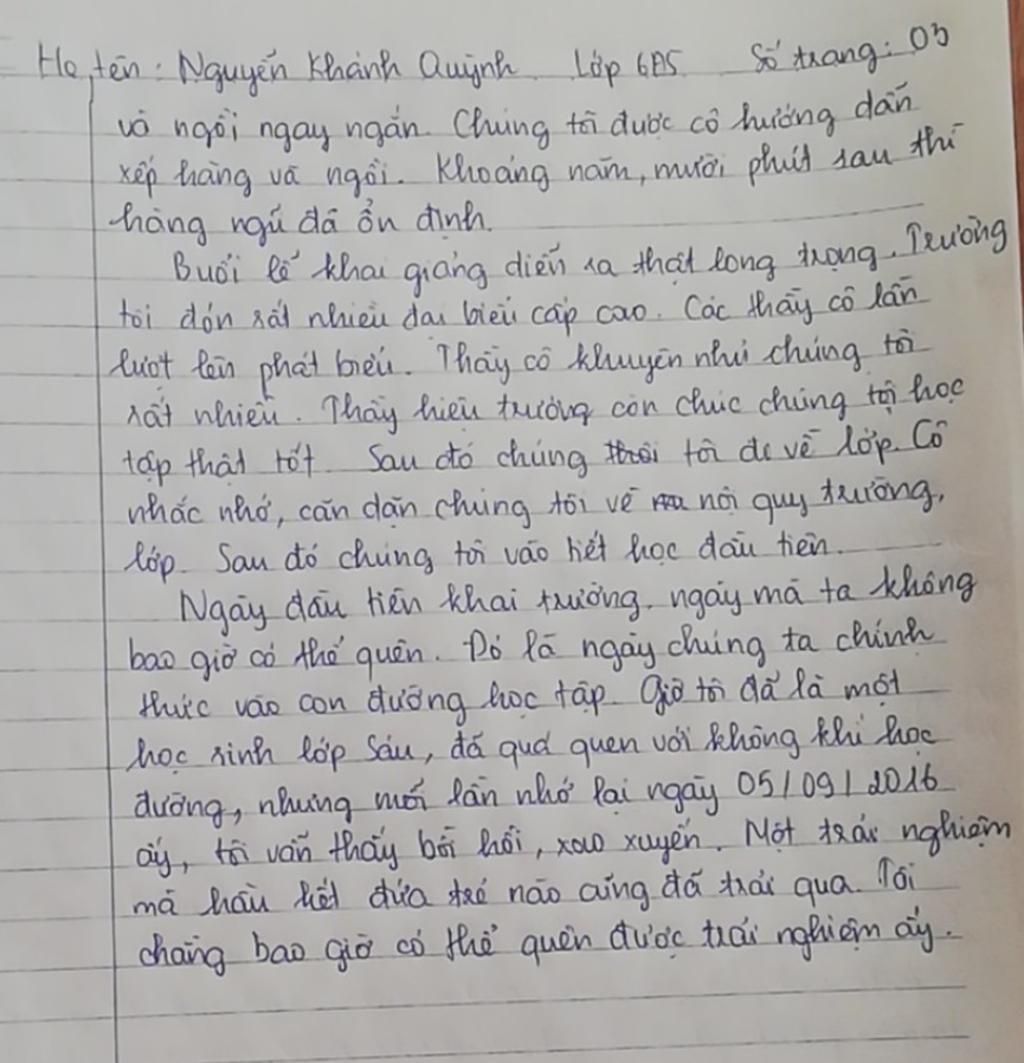 Họ tên: Nguyễn Khánh Quỳnh. Lớp 6A5 Số trang: 03
và ngồi ngay ngắn. Chúng tôi được cô hướng dẫn
xếp hàng và ngồi. Khoảng năm, mười phút sau thì
hàng ngũ đã ổn định.
Buổi lễ khai giảng diễn ra thật long trọng. Trường
tôi đón rất nhiều đại biểu cấp cao. Các thầy cô lần
lượt lên phát biểu. Thầy cô khuyên nhủ chúng tôi
rất nhiều. Thầy hiệu trưởng còn chúc chúng tôi học
tập thật tốt. Sau đó chúng tôi đi về lớp. Cô
nhắc nhở, căn dặn chúng tôi về nội quy trường,
lớp. Sau đó chúng tôi vào tiết học đầu tiên.
Ngày đầu tiên khai trường, ngày mà ta không
bao giờ có thể quên. Đó là ngày chúng ta chính
thức vào con đường học tập. Giờ tôi đã là một
học sinh lớp Sáu, đã quá quen với không khí học
đường, nhưng mỗi lần nhớ lại ngày 05/09/2016
ấy, tôi vẫn thấy bồi hồi, xao xuyến. Một trải nghiệm
mà hầu hết đứa trẻ nào cũng đã trải qua. Tôi
chẳng bao giờ có thể quên được trải nghiệm ấy.